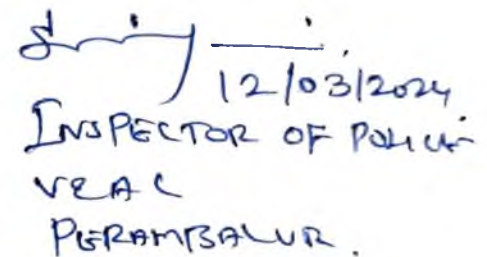 12/03/2024
INSPECTOR OF POLICE
V&AC
PERAMBALUR.